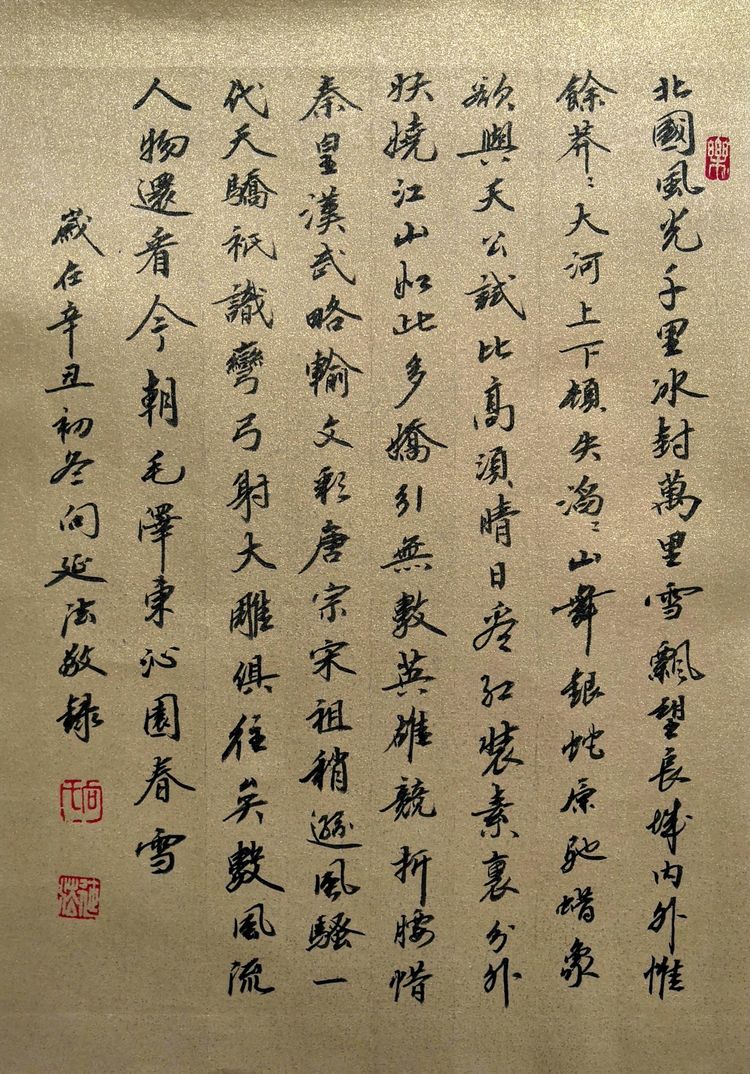 樂
北國風光千里冰封萬里雪飄望長城内外惟
餘莽〻大河上下頓失滔〻山舞銀蛇原馳蜡象
欲與天公試比高須晴日看紅裝素裹分外
妖嬈江山如此多嬌引無數英雄競折腰惜
秦皇漢武略輸文彩唐宗宋祖稍遜風騷一
代天驕祇識彎弓射大雕俱往矣數風流
人物還看今朝毛澤東沁園春雪
歲在辛丑初冬向延法敬録
向氏
延法